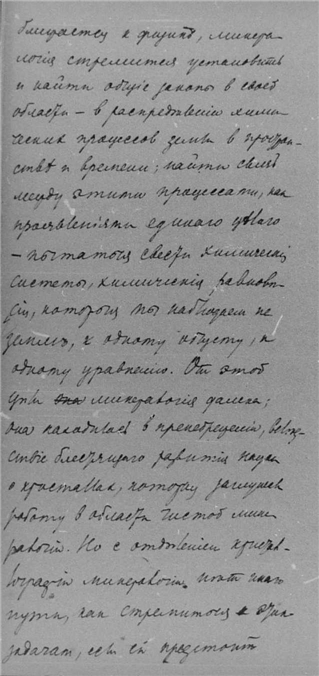 ближается к физикѣ, минера-
логія стремится установить
и найти общіе законы в своей
области – в распредѣленіи хими-
ческих процессов земли в простран-
ствѣ и времени; найти связь
между этими процессами, как
проявленіями единаго цѣлаго
– попытаться свести химическія
системы, химическія равновѣ-
сія, которыя мы наблюдаем на
землѣ, к одному общему, к
одному уравненію. От этой
цѣли минералогія далека;
она находилась в пренебреженіи, вслѣд-
ствіе блестящаго развитія науки
о кристаллах, которая заглушала
работу в области чистой мине-
ралогіи. Но с отдѣленіем кристал-
лографіи минералогіи нѣт иного
пути, как стремиться к этим
задачам, ей предстоит